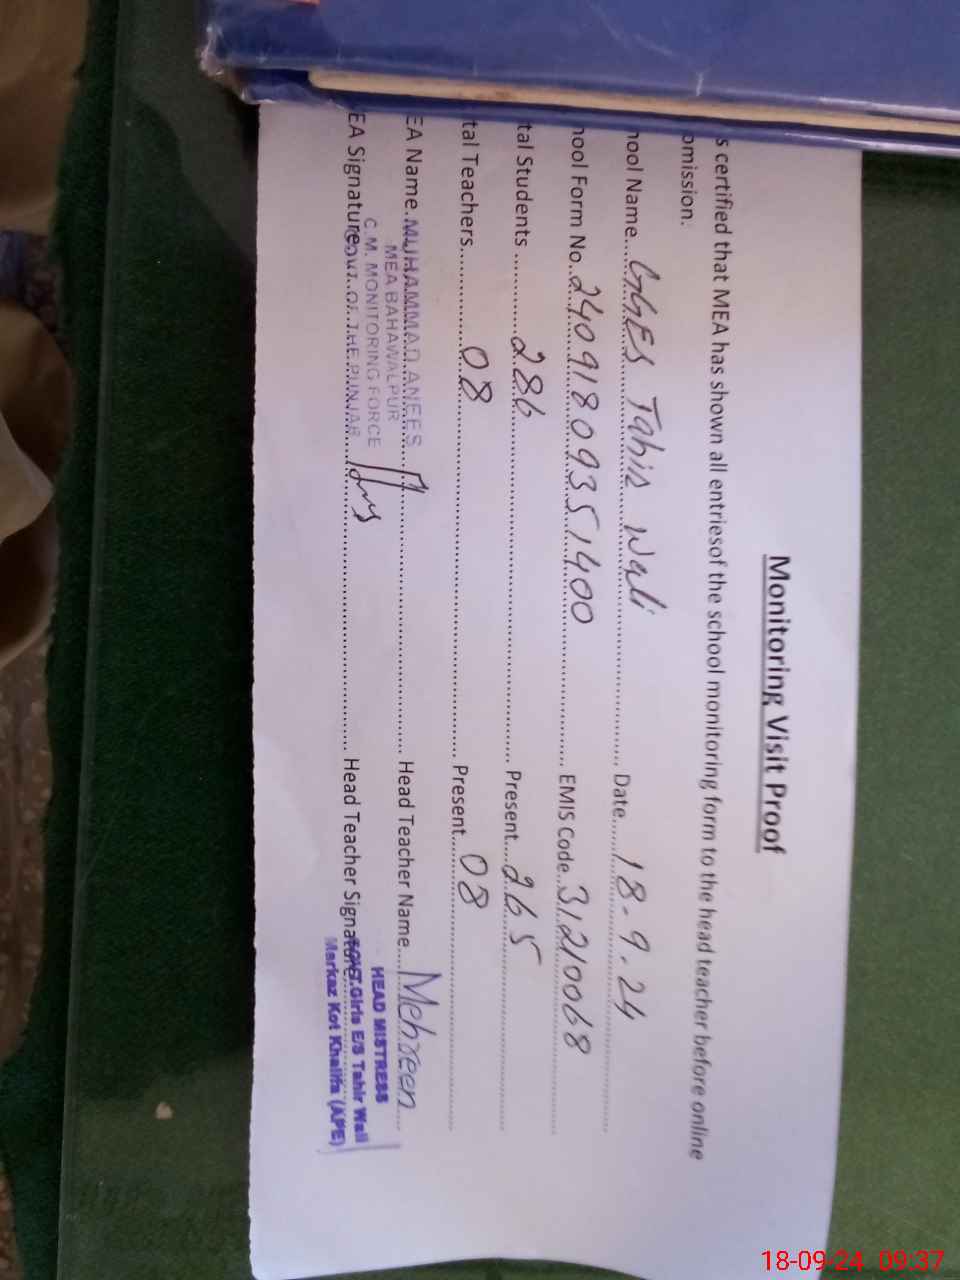 Monitoring Visit Proof
s certified that MEA has shown all entriesof the school monitoring form to the head teacher before online
omission.
hool Name...GGES Tahir Wali... Date...18-9-24
hool Form No...24091809351400... EMIS Code...31210068
tal Students...286... Present...265
tal Teachers...08... Present...08
EA Name...MUHAMMAD ANEES... Head Teacher Name...Mehreen
MEA BAHAWALPUR
C.M. MONITORING FORCE
EA Signature... GOVT. OF THE PUNJAB... Head Teacher Signature...
HEAD MISTRESS
Govt.Girls E/S Tahir Wali
Markaz Kot Khalifa (APE)
18-09-24 09:37